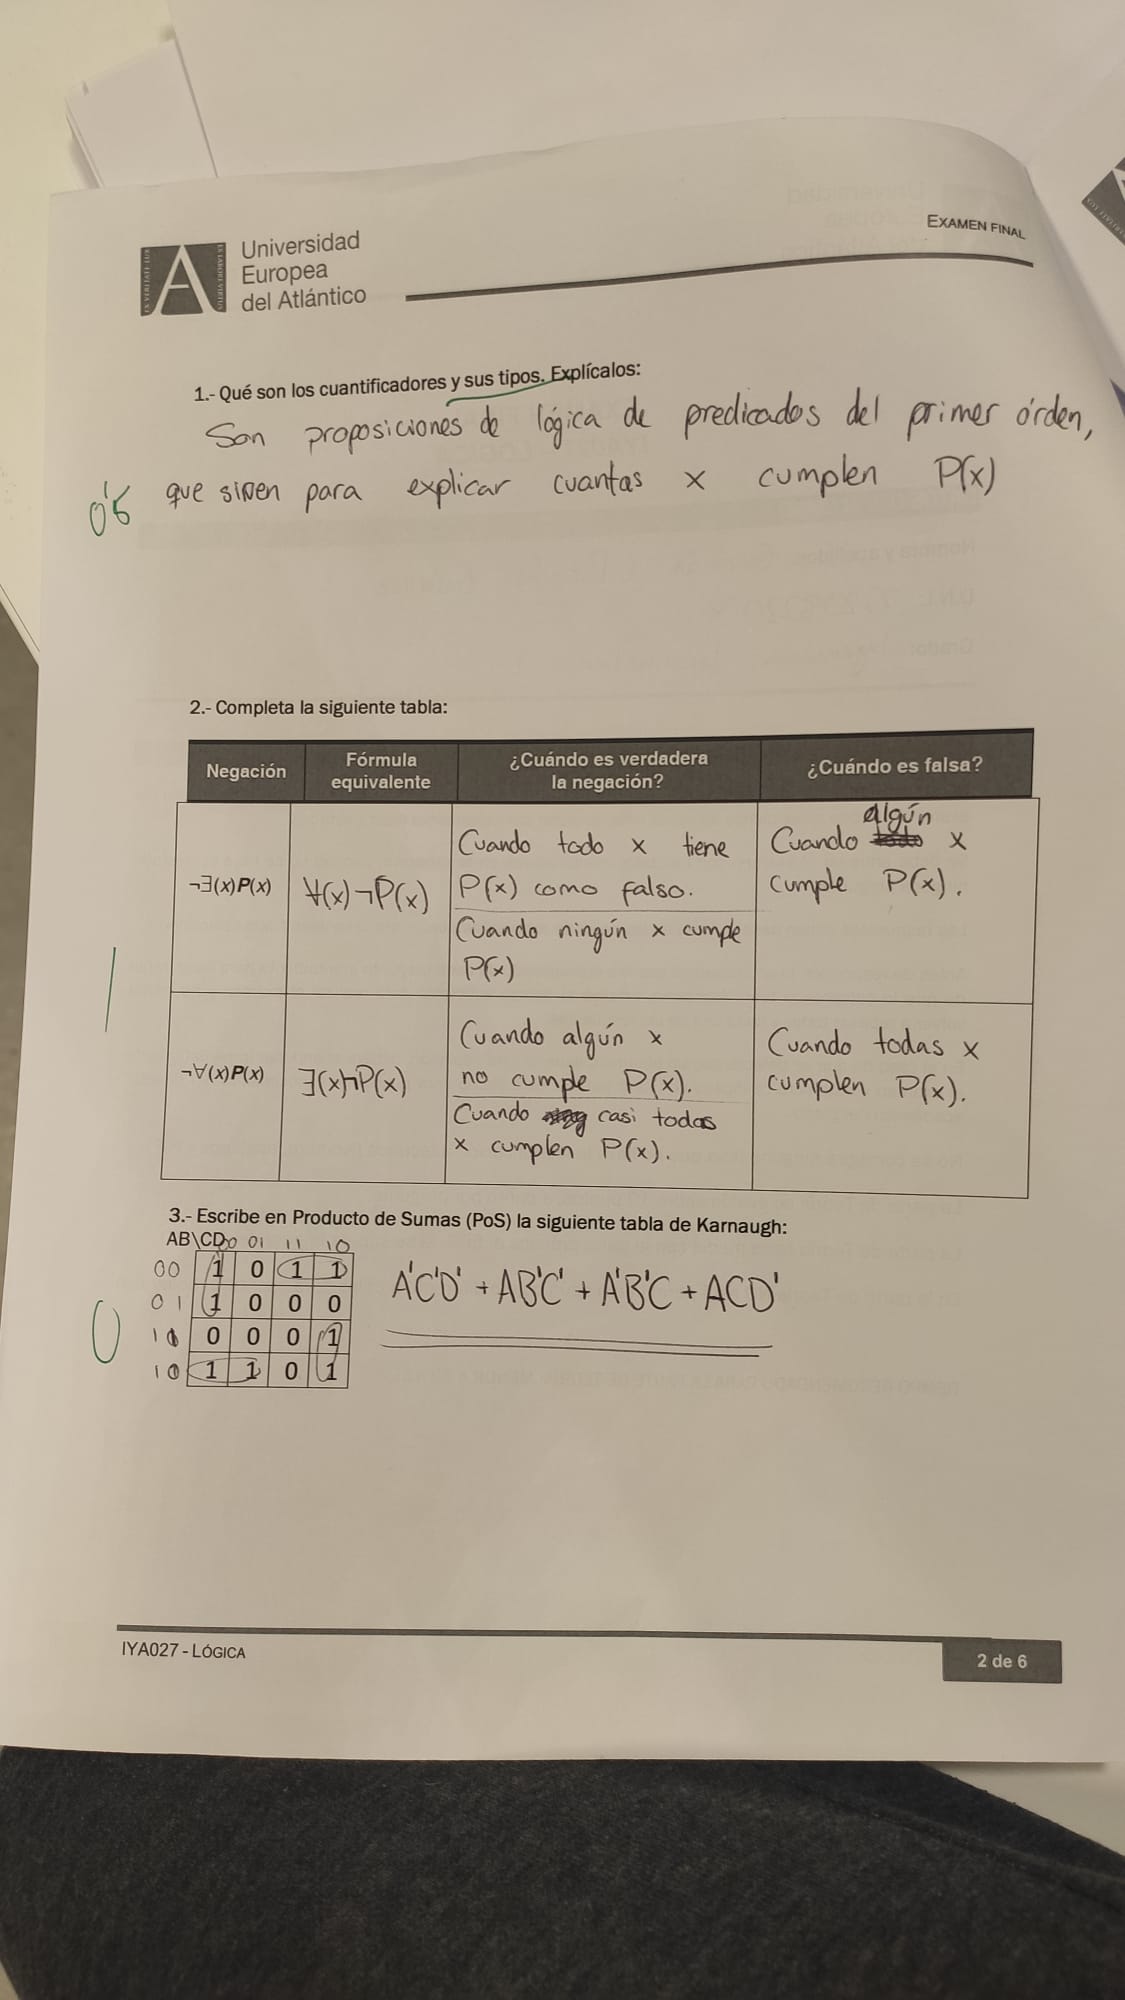 EXAMEN FINAL
Universidad
Europea
del Atlántico
1.- Qué son los cuantificadores y sus tipos. Explícalos:
Son proposiciones de lógica de predicados del primer órden,
que sirven para explicar cuantas x cumplen P(x)
0'5
2.- Completa la siguiente tabla:
Negación | Fórmula equivalente | ¿Cuándo es verdadera la negación? | ¿Cuándo es falsa?
¬∃(x)P(x) | ∀(x)¬P(x)
Cuando todo x tiene
P(x) como falso.
Cuando ningún x cumple
P(x)
Cuando algún x
cumple P(x).
1
¬∀(x)P(x) | ∃(x)¬P(x)
Cuando algún x
no cumple P(x).
Cuando casi todas
x cumplen P(x).
Cuando todas x
cumplen P(x).
3.- Escribe en Producto de Sumas (PoS) la siguiente tabla de Karnaugh:
AB\CD 00 01 11 10
00 1 0 1 1
01 1 0 0 0
0 0 0 1
10 1 1 0 1
A'C'D' + AB'C' + A'B'C + ACD'
0
IYA027 - LÓGICA
2 de 6